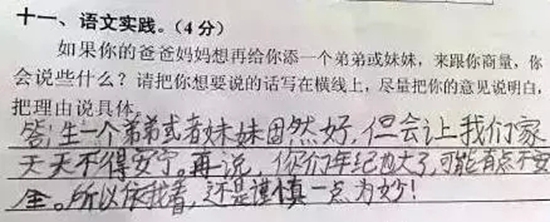 十一、语文实践。(4分)
如果你的爸爸妈妈想再给你添一个弟弟或妹妹，来跟你商量，你
会说些什么？请把你想要说的话写在横线上，尽量把你的意见说明白，
把理由说具体。
答：生一个弟弟或者妹妹固然好，但会让我们家
天天不得安宁。再说，你们年纪也大了，可能有点不安
全。所以依我看，还是谨慎一点为妙！